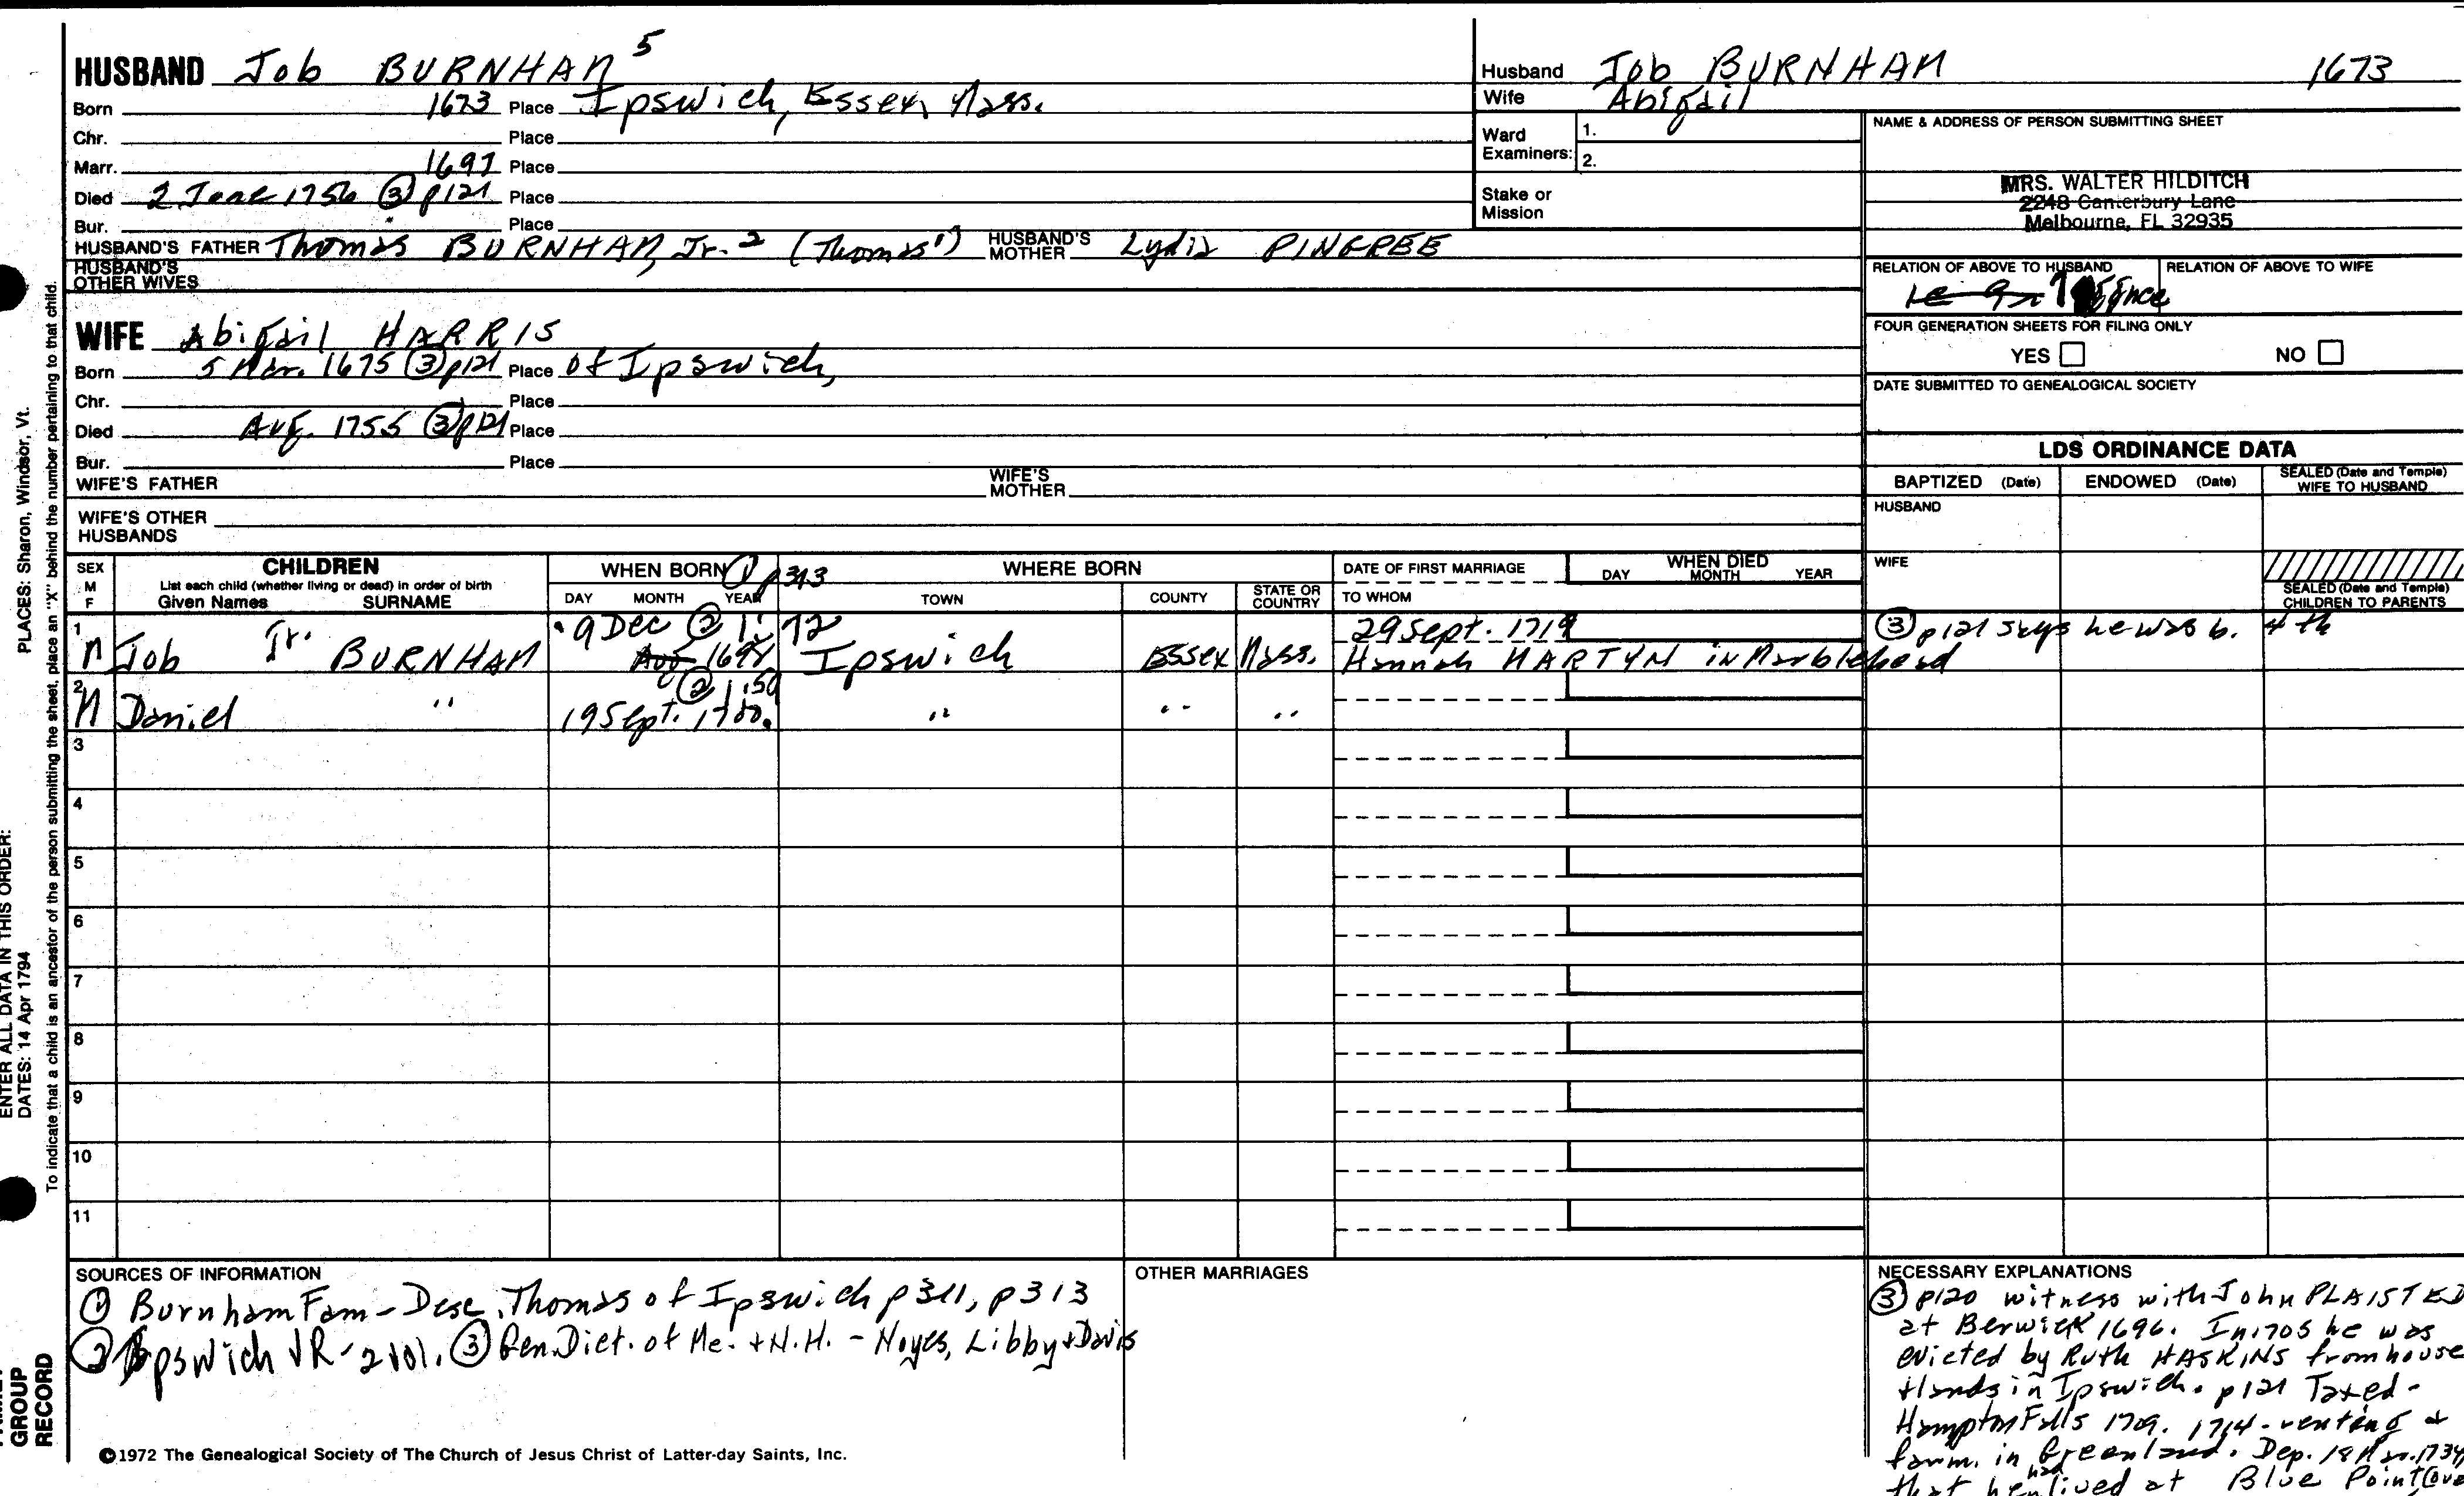 HUSBAND Job BURNHAM 5
Born 1673 Place Ipswich, Essex, Mass.
Chr. Place
Marr. 1697 Place
Died 2 June 1756 ③ p121 Place
Bur. Place
HUSBAND'S FATHER Thomas BURNHAM, Jr.2 (Thomas1) HUSBAND'S MOTHER Lydia PINGREE
HUSBAND'S OTHER WIVES
WIFE Abigail HARRIS
Born 5 Mar. 1675 ③ p121 Place of Ipswich,
Chr. Place
Died Aug. 1755 ③ p121 Place
Bur. Place
WIFE'S FATHER WIFE'S MOTHER
WIFE'S OTHER HUSBANDS
Husband Job BURNHAM 1673
Wife Abigail
Ward Examiners: 1.
2.
Stake or Mission
NAME & ADDRESS OF PERSON SUBMITTING SHEET
MRS. WALTER HILDITCH
2248 Canterbury Lane
Melbourne, FL 32935
RELATION OF ABOVE TO HUSBAND RELATION OF ABOVE TO WIFE
FOUR GENERATION SHEETS FOR FILING ONLY
YES NO
DATE SUBMITTED TO GENEALOGICAL SOCIETY
LDS ORDINANCE DATA
BAPTIZED (Date) ENDOWED (Date) SEALED (Date and Temple) WIFE TO HUSBAND
HUSBAND
WIFE
SEALED (Date and Temple) CHILDREN TO PARENTS
SEX M F
CHILDREN
List each child (whether living or dead) in order of birth
Given Names SURNAME
WHEN BORN ① p313
DAY MONTH YEAR
WHERE BORN
TOWN COUNTY STATE OR COUNTRY
DATE OF FIRST MARRIAGE
TO WHOM
WHEN DIED
DAY MONTH YEAR
1 M Job Jr. BURNHAM 9 Dec ② 1:72 Aug 1698 Ipswich Essex Mass. 29 Sept. 1719
Hannah MARTYN in Marblehead
③ p121 says he was b. 4th
2 M Daniel " 19 Sept. 1700. ② 1:50 " " "
3
4
5
6
7
8
9
10
11
SOURCES OF INFORMATION
① Burnham Fam - Desc. Thomas of Ipswich p311, p313
② Ipswich VR - 2 vol. ③ Gen. Dict. of Me. + N.H. - Noyes, Libby + Davis
OTHER MARRIAGES
NECESSARY EXPLANATIONS
③ p120 witness with John PLAISTED
at Berwick 1696. In 1705 he was
evicted by Ruth HASKINS from house
+ lands in Ipswich. p121 Taxed -
Hampton Falls 1709. 1714 - renting a
farm in Greenland. Dep. 18 Mar. 1734
that he had lived at Blue Point (ove
©1972 The Genealogical Society of The Church of Jesus Christ of Latter-day Saints, Inc.
PLACES: Sharon, Windsor, Vt.
ENTER ALL DATA IN THIS ORDER:
DATES: 14 Apr 1794
To indicate that a child is an ancestor of the person submitting the sheet, place an "X" behind the number pertaining to that child.
GROUP
RECORD